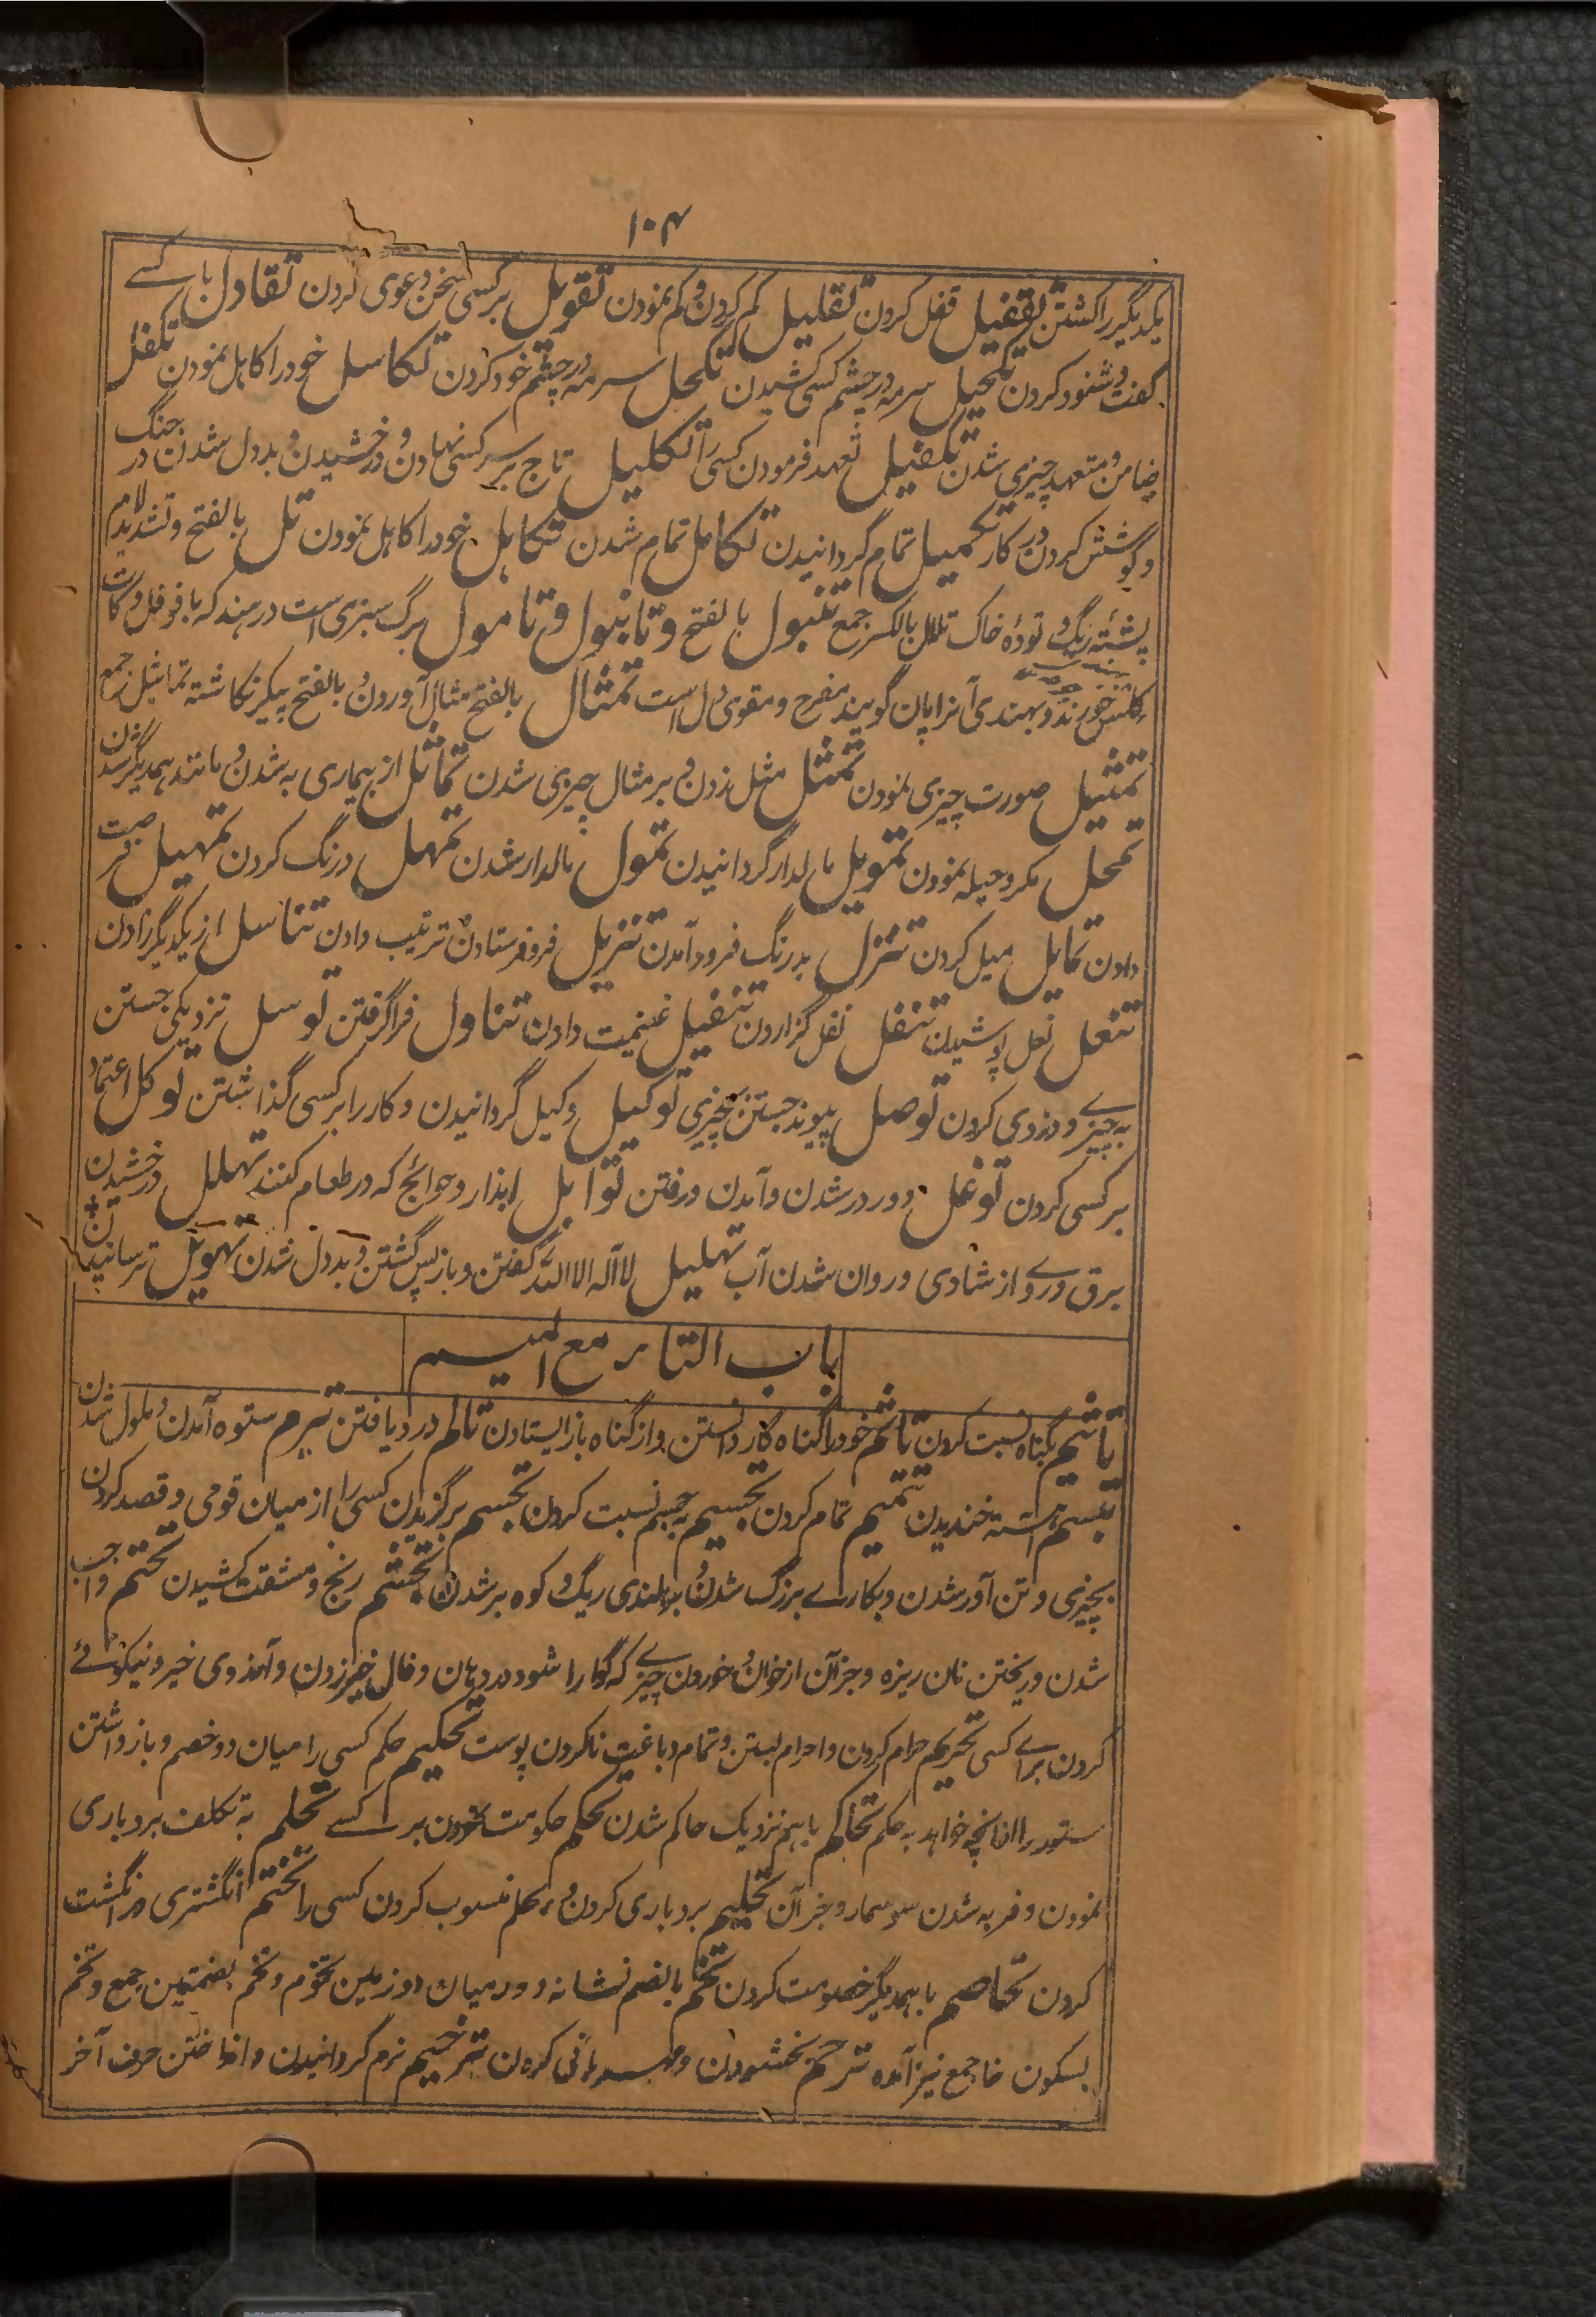 ۱۰۴
یکدیگر را کشتن تقفیل قفل کردن تقلیل کم کردن و کم نمودن تقویل بر کسی سخن دعوی کردن تقاول با کسے
گفت و شنود کردن تکحیل سرمه در چشم کسی کشیدن تکحل سرمه در چشم خود کردن تکاسل خود را کاہل نمودن تکفل
ضامن و متعهد چیزی شدن تکفیل تعهد فرمودن کسی را تکلیل تاج بر سر کسی نہادن و درخشیدن و بددل شدن در جنگ
و کوشش کردن در کار تکمیل تمام گردانیدن تکامل تمام شدن تکاہل خود را کاہل نمودن تل بالفتح و تشدید لام
پشتۂ ریگ و تودۂ خاک تلال بالکسر جمع تنبول بالفتح و تانبول و تامول برگ سبزی است در ہند که با فوفل و کات
کلس خورند و بہندی آنرا پان گویند مفرح و مقوی دل است تمثال بالفتح مثال آوردن و بالفتح پیکر نگاشته تماثیل جمع
تمثیل صورت چیزی نمودن تمثل مثل زدن و بر مثال چیزی شدن تماثل از بیماری به شدن و مانند ہمدیگر شدن
تمحل مکر و حیله نمودن تمویل مالدار گردانیدن تمول مالدار شدن تمہل درنگ کردن تمہیل فرصت
دادن تمایل میل کردن تنزل بدرنگ فرود آمدن تنزیل فرو فرستادن و ترتیب دادن تناسل از یکدیگر زادن
تنعل نعل پوشیدن تنفل نفل گزاردن تنفیل غنیمت دادن تناول فرا گرفتن توسل نزدیکی جستن
به چیزے و دزدی کردن توصل پیوند جستن بچیزی توکیل وکیل گردانیدن و کار را بر کسی گذاشتن توکل اعتماد
بر کسی کردن توغل دور در شدن و آمدن و رفتن توابل ابذار و حوائج که در طعام کنند تہلل درخشیدن
برق و روے از شادی و روان شدن آب تہلیل لا اله الا الله گفتن و باز پس گشتن و بددل شدن تہویل ترسانیدن
باب التاء مع المیم
تاثیم بگناه نسبت کردن تاثم خود را گناه گار دانستن و از گناه باز ایستادن تالم درد یافتن تبرم ستوه آمدن و ملول شدن
تبسم آہسته خندیدن تتمیم تمام کردن تجسیم بہ جسم نسبت کردن تجسم برگزیدن کسی را از میان قومی و قصد کردن
بچیزی و تن آور شدن و بکارے بزرگ شدن و بر بلندی ریگ و کوه بر شدن تجشم رنج و مشقت کشیدن تحتم واجب
شدن و ریختن نان ریزه و جز آن از خوان و خوردن چیزے که گوارا شود در دہان و فال خیر زدن و آرزوی خیر و نیکوئے
کردن براے کسی تحریم حرام کردن و احرام بستن و تمام دباغت ناکردن پوست تحکیم حکم کسی را میان دو خصم و باز داشتن
ستور را از آنچه خواہد به حکم تحاکم با ہم نزدیک حاکم شدن تحکم حکومت نمودن بر کسے تحلم به تکلف بردباری
نمودن و فربه شدن سوسمار و جز آن تحلیم بردباری کردن و بحلم منسوب کردن کسی را تختم انگشتری در انگشت
کردن تخاصم با ہمدیگر خصومت کردن تخم بالضم نشانه و در میان دو زمین تخوم و تخم بضمتین جمع و تخم
بسکون خا جمع نیز آمده ترحم بخشودن و مہربانی کردن ترخیم نرم گردانیدن و انداختن حرف آخر